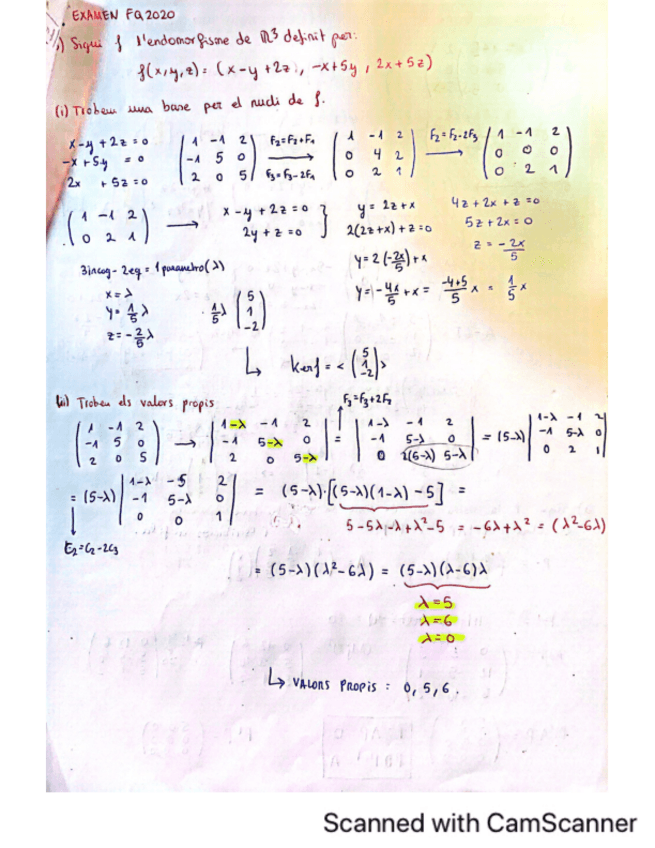 EXAMEN FQ 2020
1) Sigui f l'endomorfisme de ℝ³ definit per:
f(x,y,z) = (x-y+2z, -x+5y, 2x+5z)
(i) Trobeu una base per el nucli de f.
x-y+2z=0
-x+5y =0
2x +5z=0
| 1 -1 2 |
| -1 5 0 |
| 2 0 5 |
F2=F2+F1
→
F3=F3-2F1
( 1 -1 2 )
( 0 4 2 )
( 0 2 1 )
F2=F2-2F3
→
( 1 -1 2 )
( 0 0 0 )
( 0 2 1 )
( 1 -1 2 )
( 0 2 1 )
→
x-y+2z=0
2y+z=0 }
y = 2z+x
2(2z+x)+z=0
4z+2x+z=0
5z+2x=0
z = -2x/5
3incog-2eq = 1 parametro(λ)
y=2(-2x/5)+x
y=-4x/5+x = -4+5/5 x = 1/5 x
x=λ
y=1/5 λ
z=-2/5 λ
1/5 λ (5 1 -2)
↳ Ker f = <(5 1 -2)>
(ii) Trobeu els valors propis
F3=F3+2F2
( 1 -1 2 )
( -1 5 0 )
( 2 0 5 )
→
| 1-λ -1 2 |
| -1 5-λ 0 |
| 2 0 5-λ |
=
| 1-λ -1 2 |
| -1 5-λ 0 |
| 0 2(5-λ) 5-λ |
= (5-λ)
| 1-λ -1 2 |
| -1 5-λ 0 |
| 0 2 1 |
= (5-λ)
| 1-λ -5 2 |
| -1 5-λ 0 |
| 0 0 1 |
= (5-λ)·[(5-λ)(1-λ)-5] =
5-5λ-λ+λ²-5 = -6λ+λ² = (λ²-6λ)
C2=C2-2C3
= (5-λ)(λ²-6λ) = (5-λ)(λ-6)λ
λ=5
λ=6
λ=0
↳ VALORS PROPIS : 0, 5, 6.
Scanned with CamScanner